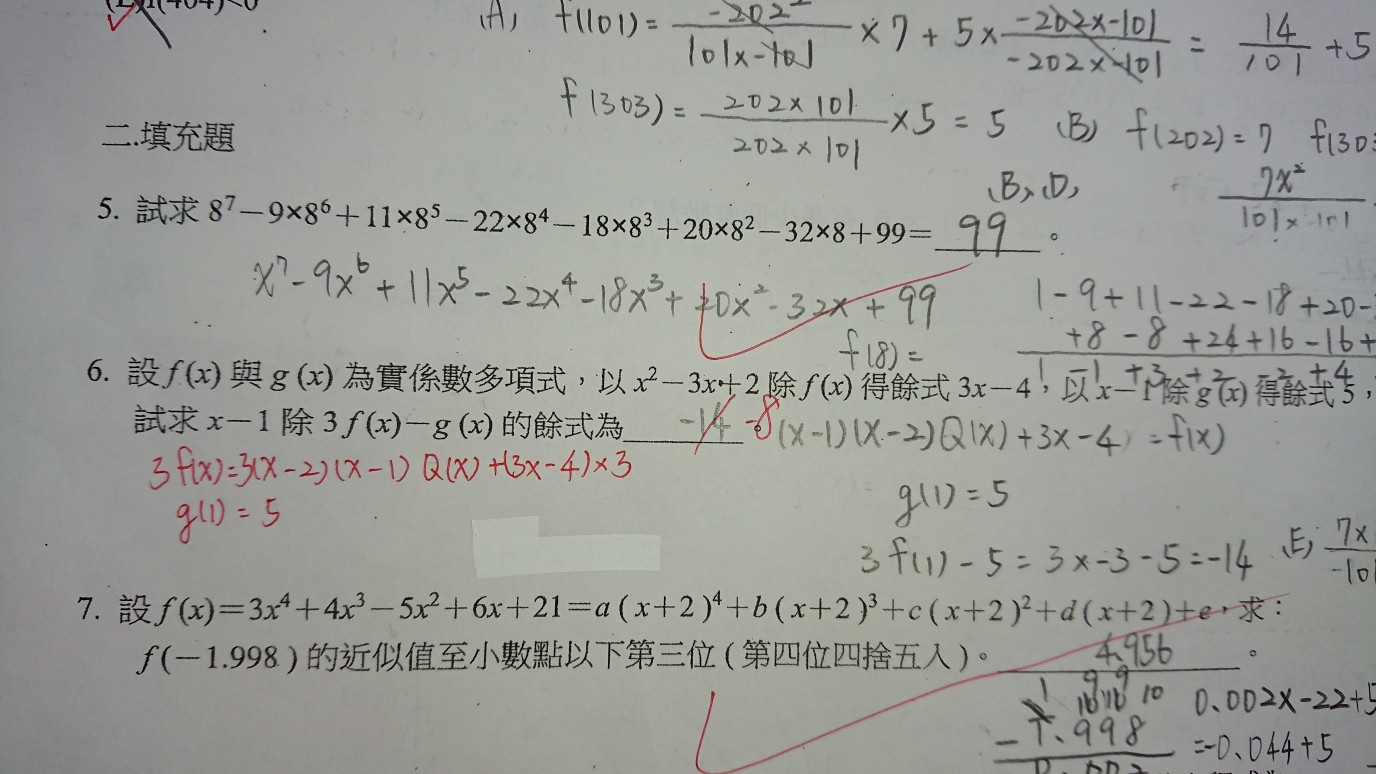 (A) f(101) = -202²/101x-101 × 7 + 5 × -202x-101/-202x-101 = 14/101 + 5
f(303) = 202×101/202×101 ×5 = 5 (B) f(202) = 7
二.填充題
(B)、(D)
7x²/101x-101
5. 試求 8⁷－9×8⁶＋11×8⁵－22×8⁴－18×8³＋20×8²－32×8＋99＝ 99 。
x⁷-9x⁶+11x⁵-22x⁴-18x³+20x²-32x+99
1-9+11-22-18+20-
+8-8+24+16-16+
1-1+3+2-2+4
f(8)=
6. 設 f(x) 與 g(x) 為實係數多項式，以 x²－3x＋2 除 f(x) 得餘式 3x－4，以 x－1 除 g(x) 得餘式 5，
試求 x－1 除 3f(x)－g(x) 的餘式為 -14 -8 。(x-1)(x-2)Q(x)+3x-4 = f(x)
3f(x)=3(x-2)(x-1)Q(x)+(3x-4)×3
g(1) = 5
g(1) = 5
3f(1)-5 = 3×-3-5=-14
(E) 7x
-10
7. 設 f(x)＝3x⁴＋4x³－5x²＋6x＋21＝a(x＋2)⁴＋b(x＋2)³＋c(x＋2)²＋d(x＋2)＋e，求：
f(－1.998)的近似值至小數點以下第三位(第四位四捨五入)。 4.956 。
0.002×-22+5
-1.998
=-0.044+5